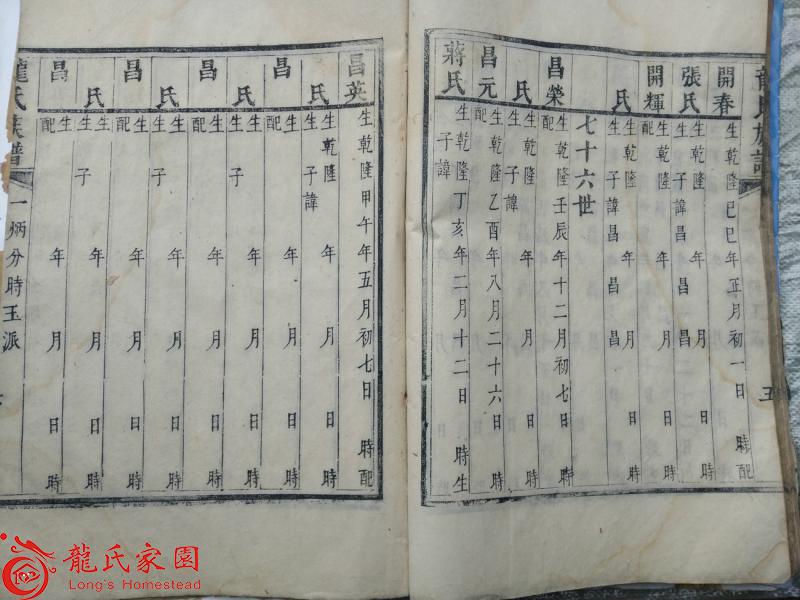 龍氏族譜
五
開春 生乾隆己巳年正月初一日 時配
張氏 生乾隆 年 月 日 時
子諱昌 昌
開輝 生乾隆 年 月 日 時配
氏 生乾隆 年 月 日 時
子諱昌 昌
七十六世
昌榮 生乾隆壬辰年十二月初七日 時配
氏 生乾隆 年 月 日 時
子諱
昌元 生乾隆乙酉年八月二十六日 時配
蔣氏 生乾隆丁亥年二月十二日 時生
子諱
昌英 生乾隆甲午年五月初七日 時配
氏 生乾隆 年 月 日 時
子諱
昌 生 年 月 日 時配
氏 生 年 月 日 時
子
昌 生 年 月 日 時配
氏 生 年 月 日 時
子
昌 生 年 月 日 時配
氏 生 年 月 日 時
子
昌 生 年 月 日 時配
龍氏族譜 一炳分時玉派
龍氏家園
Long's Homestead